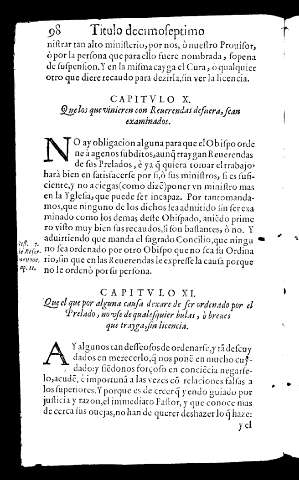 98 Titulo decimoseptimo
nistrar tan alto ministerio, por nos, ò nuestro Prouisor,
ò por la persona que para ello fuere nombrada, sopena
de suspension. Y en la misma cayga el Cura, o qualquier
otro que diere recaudo para dezirla, sin ver la licencia.
CAPITVLO X.
Que los que vinieren con Reuerendas de fuera, sean
examinados.
NO ay obligacion alguna para que el Obispo orde
ne à agenos subditos, aunq̃ traygan Reuerendas
de sus Prelados, è ya q̃ quiera tomar el trabajo
harà bien en satisfacerse por si, ò sus ministros, si es suf-
ciente, y no a ciegas (como dizẽ) poner vn ministro mas
en la Yglesia, que puede ser incapaz. Por tanto manda-
mos, que ninguno de los dichos sea admitido sin ser exa
minado como los demas deste Obispado, auiẽdo prime
ro visto muy bien sus recaudos, si son bastantes, ò no. Y
aduirtiendo que manda el sagrado Concilio, que ningu
no sea ordenado por otro Obispo que no sea su Ordina
rio, sin que en las Reuerendas le expresse la causa porque
no le ordenò por su persona.
CAPITVLO XI.
Que el que por alguna causa dexare de ser ordenado por el
Prelado, no vse de qualesquier bulas, ò breues
que trayga, sin licencia.
AY algunos tan desseosos de ordenarse, y tã descuy
dados en merecerlo, q̃ nos ponẽ en mucho cuy-
dado: y siẽdonos forçoso en conciẽcia negarse-
lo, acudẽ, è importunã a las vezes cõ relaciones falsas a
los superiores. Y porque es de creer q̃ yendo guiado por
justicia y razon, el immediato Pastor, y que conoce mas
de cerca sus ouejas, no han de querer deshazer lo q̃ haze:
y el